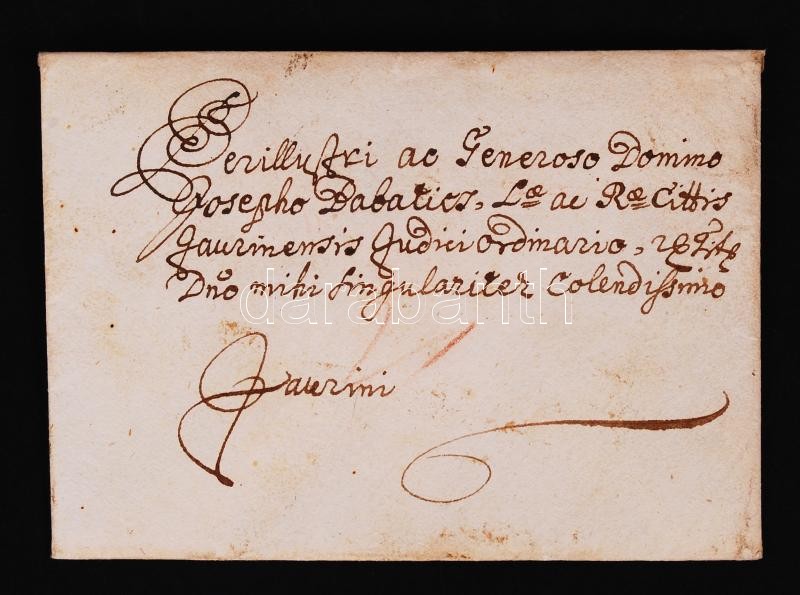 Perillustri ac Generoso Domino
Josepho Dabatics, Læ ac Ræ Cittis
Jaurinensis Judici ordinario,
Dno mihi singulariter Colendissimo
darabanth
Jaurini